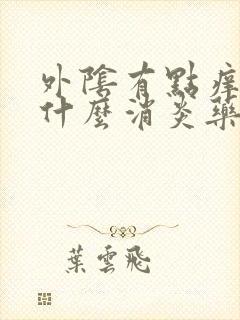 外陰有點痒
什麼消炎藥
葉雲飛